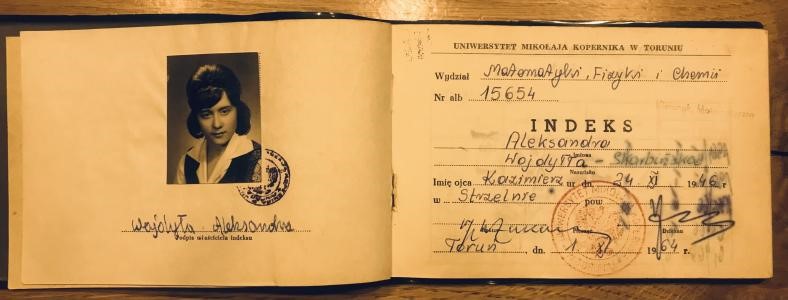 Wojdyłła Aleksandra
Podpis właściciela indeksu
UNIWERSYTET MIKOŁAJA KOPERNIKA W TORUNIU
Wydział Matematyki, Fizyki i Chemii
Nr alb 15654
INDEKS
Aleksandra
Imiona
Wojdyłła - Skarbińska
Nazwisko
Imię ojca Kazimierz ur dn. 24 XI 1946 r
w Strzelnie pow
Dziekan
Toruń, dn. 1 XI 1964 r.